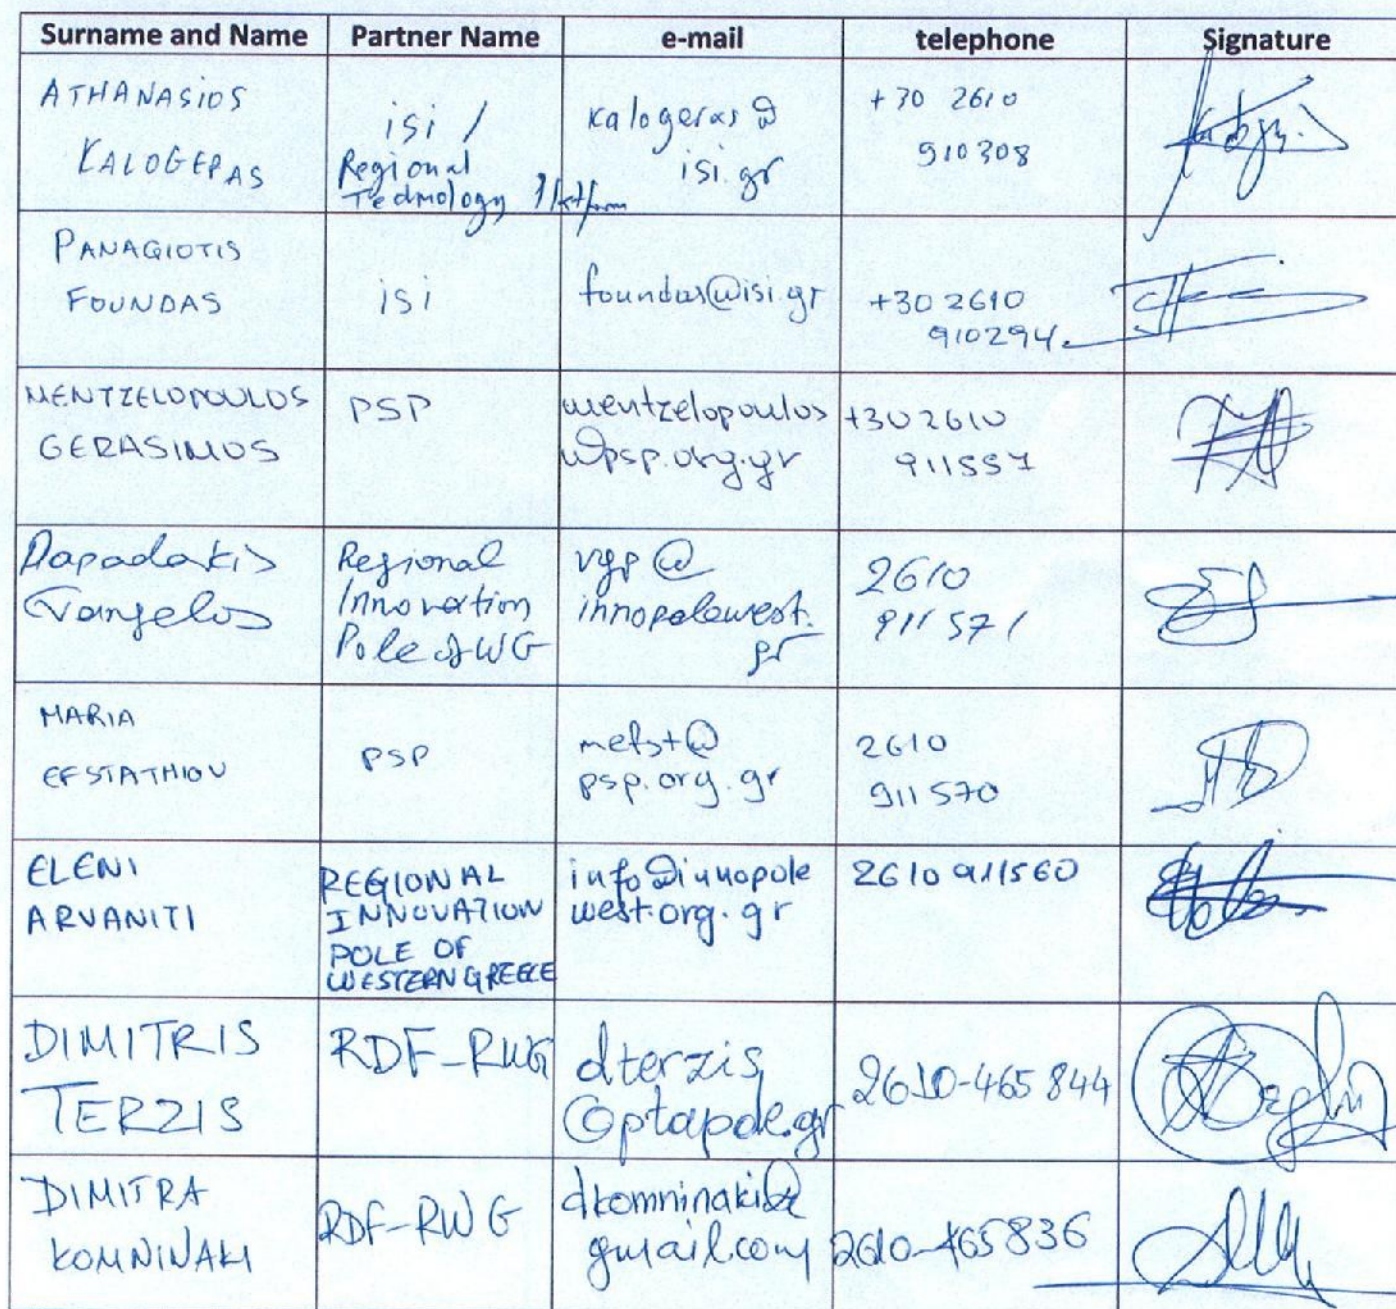 Surname and Name Partner Name e-mail telephone Signature
ATHANASIOS
KALOGERAS
isi /
Regional
Technology Platform
kalogeras @
isi.gr
+30 2610
910308
PANAGIOTIS
FOUNDAS
isi
foundas@isi.gr
+30 2610
910294
MENTZELOPOULOS
GERASIMOS
PSP
mentzelopoulos
@psp.org.gr
+302610
911557
Papadakis
Vangelos
Regional
Innovation
Pole of WG
vgp @
innopolewest.
gr
2610
911 571
MARIA
EFSTATHIOU
PSP
mefst@
psp.org.gr
2610
911570
ELENI
ARVANITI
REGIONAL
INNOVATION
POLE OF
WESTERN GREECE
info@innopole
west.org.gr
2610 911560
DIMITRIS
TERZIS
RDF-RWG
dterzis
@ptapde.gr
2610-465844
DIMITRA
KOMNINAKI
RDF-RWG
dkomninaki@
gmail.com
2610-465836